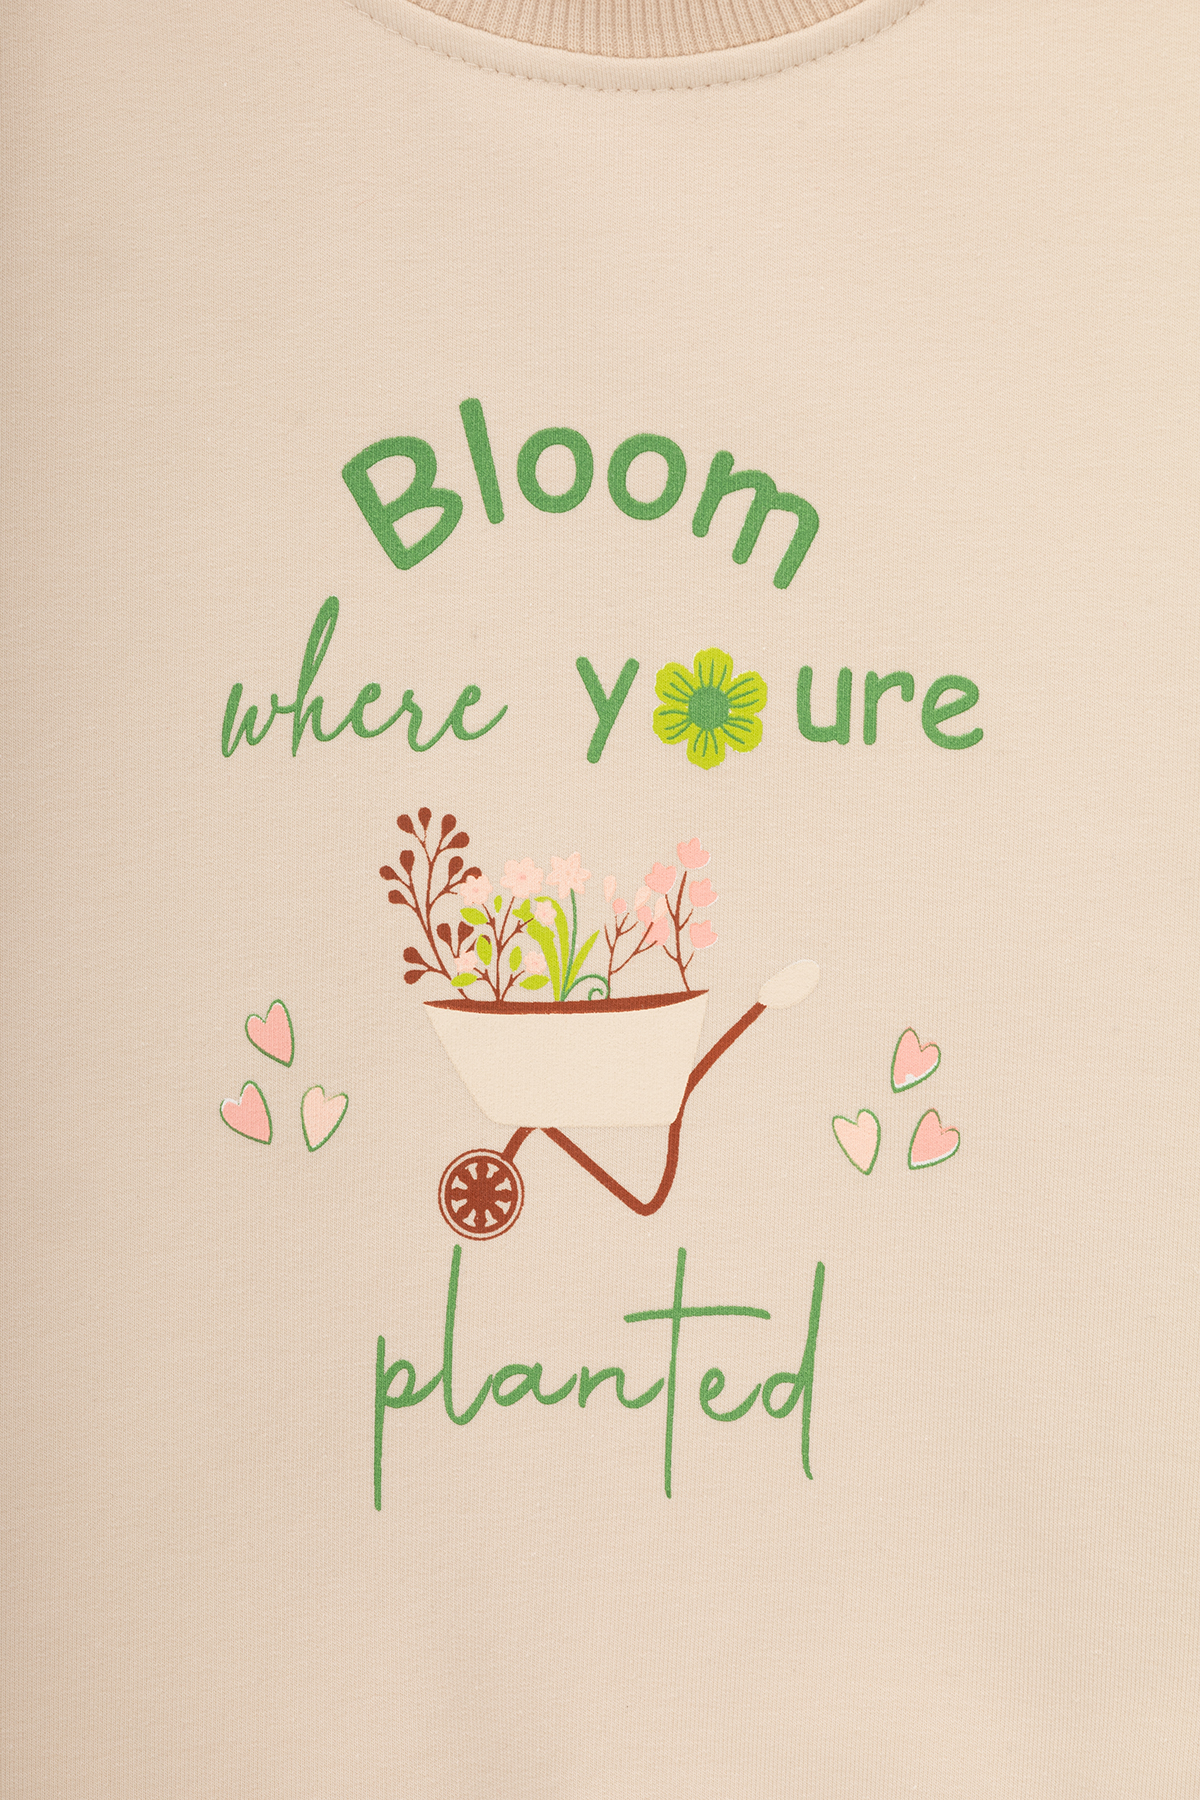 Bloom
where youre
planted